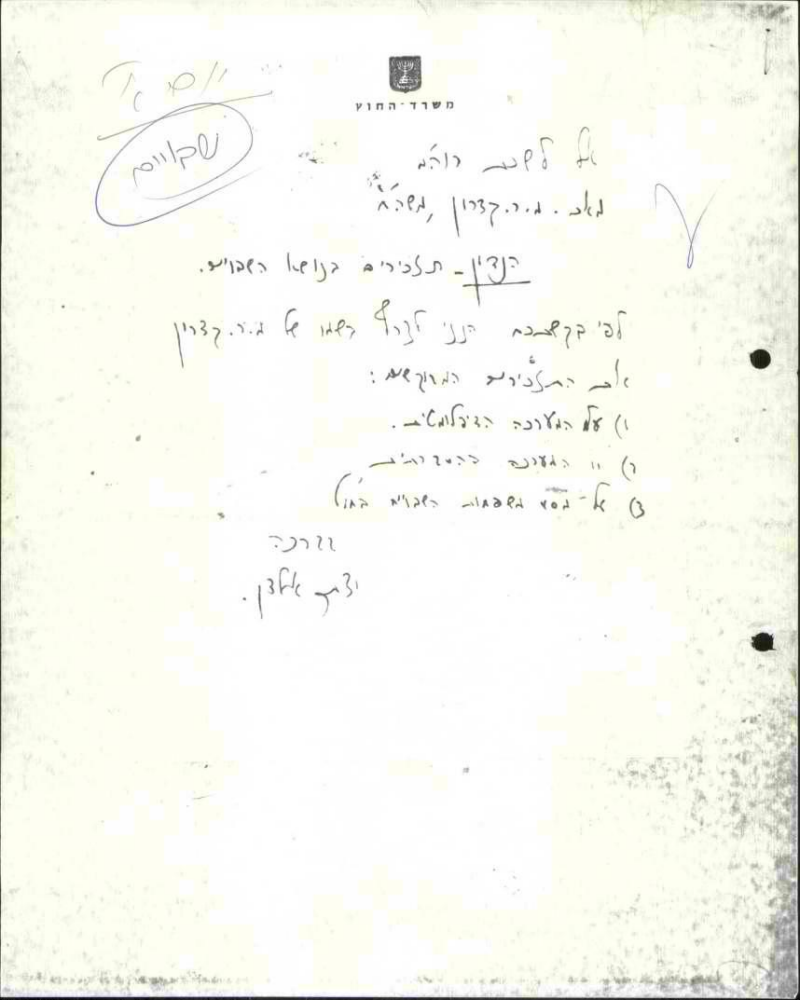 משרד-החוץ
שבויים
אל לשכת רוה"מ
מאת. מ.ר. קדרון, משה"ח
הנדון - תזכירים בנושא השבויים.
לפי בקשתכם הנני לצרף בשמו של מ.ר. קדרון
את התזכירים המבוקשים:
1) על המערכה הדיפלומטית.
2) " המערכה ההסברתית
3) על מסע משפחות השבויים בחו"ל
בברכה
יצחק